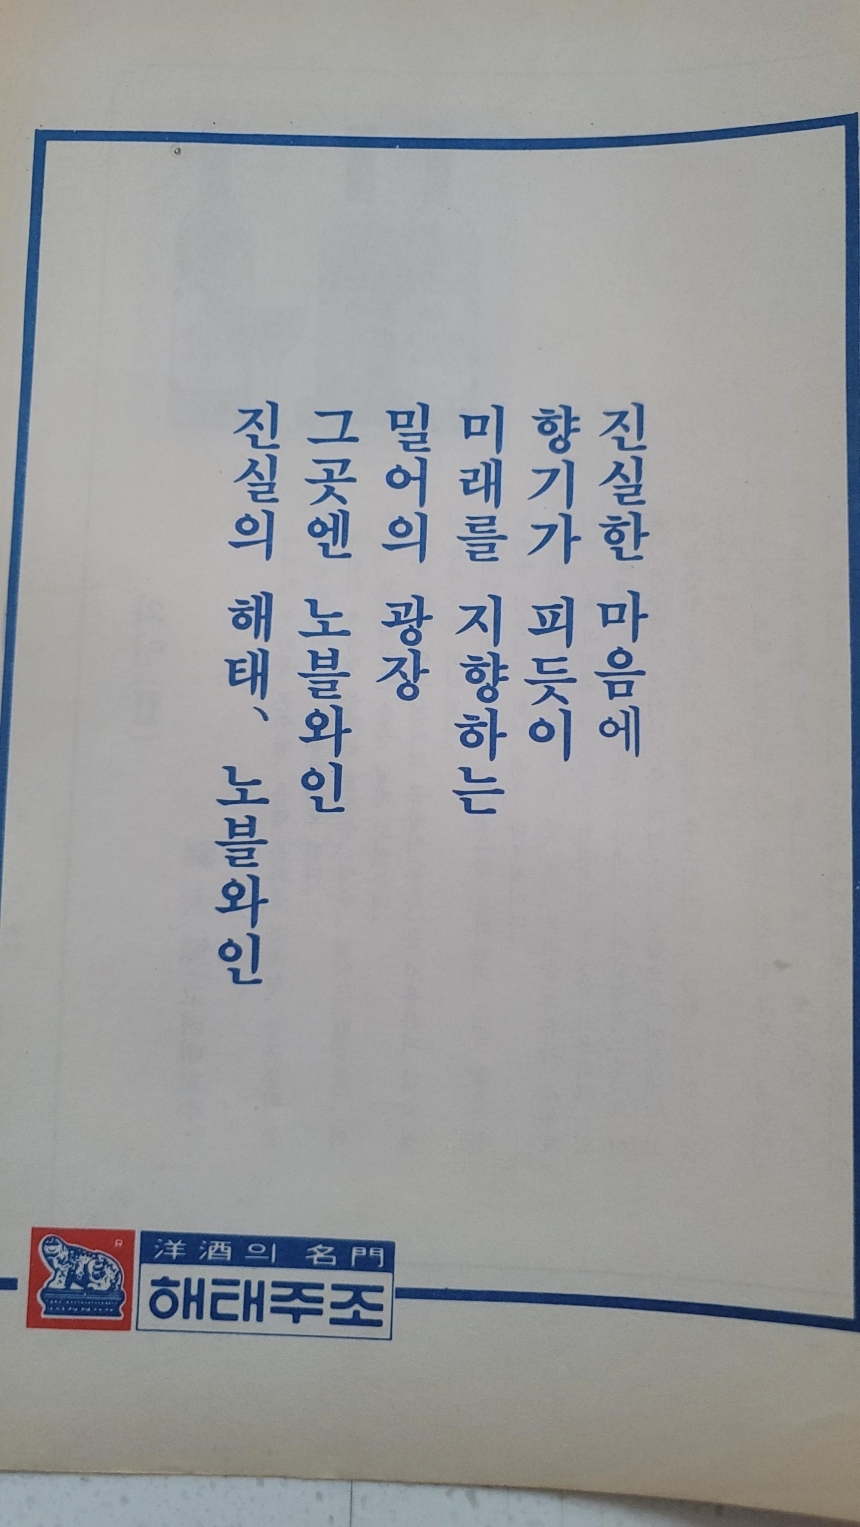 진실한 마음에
향기가 피듯이
미래를 지향하는
밀어의 광장
그곳엔 노블와인
진실의 해태、 노블와인
洋酒의 名門
해태주조